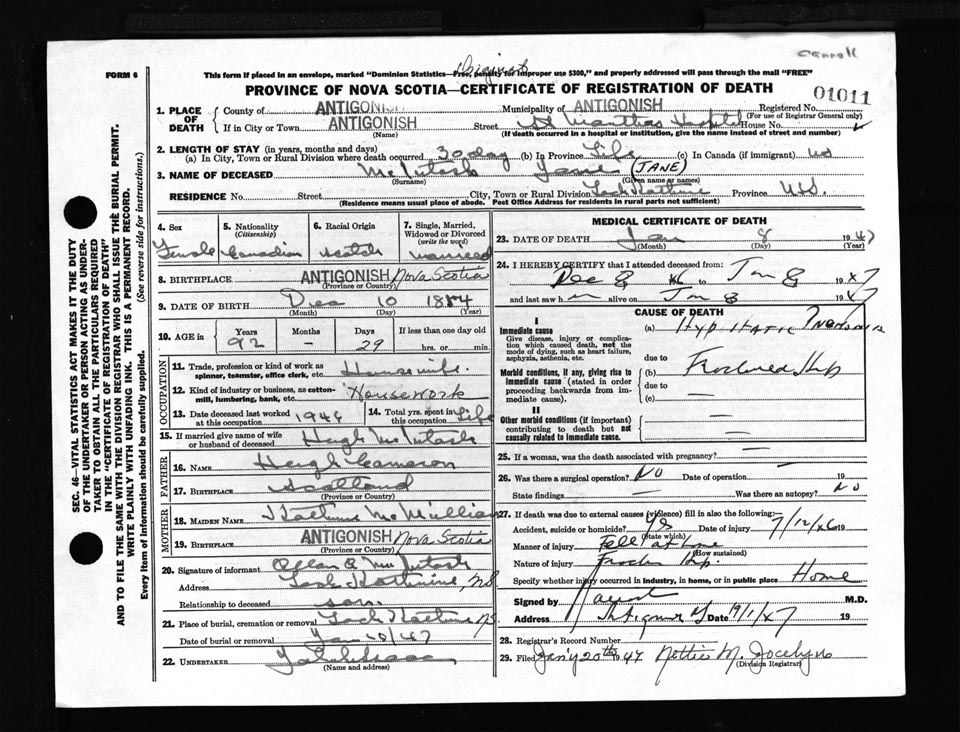 Carroll
Original
FORM 6
This form if placed in an envelope, marked "Dominion Statistics—Free, penalty for improper use $300," and properly addressed will pass through the mail "FREE"
PROVINCE OF NOVA SCOTIA—CERTIFICATE OF REGISTRATION OF DEATH
01011
1. PLACE OF DEATH
County of ANTIGONISH Municipality of ANTIGONISH Registered No.
(For use of Registrar General only)
If in City or Town ANTIGONISH Street St Marthas Hospital House No.
(Name) (If death occurred in a hospital or institution, give its name instead of street and number)
2. LENGTH OF STAY (in years, months and days)
(a) In City, Town or Rural Division where death occurred 30 day (b) In Province Life (c) In Canada (if immigrant)
3. NAME OF DECEASED McIntosh (JANE)
(Surname) (Given name or names)
RESIDENCE No. Street City, Town or Rural Division Loch Katrine Province N.S.
(Residence means usual place of abode. Post Office Address for residents in rural parts not sufficient)
4. Sex Female
5. Nationality (Citizenship) Canadian
6. Racial Origin Scotch
7. Single, Married, Widowed or Divorced (write the word)
8. BIRTHPLACE ANTIGONISH Nova Scotia
(Province or Country)
9. DATE OF BIRTH Dec 10 1854
(Month) (Day) (Year)
10. AGE in Years Months Days If less than one day old
92 – 29 hrs. or min.
OCCUPATION
11. Trade, profession or kind of work as spinner, teamster, office clerk, etc. Housewife
12. Kind of industry or business, as cotton-mill, lumbering, bank, etc. Housework
13. Date deceased last worked at this occupation 1946
14. Total yrs. spent in this occupation Life
15. If married give name of wife or husband of deceased Hugh McIntosh
FATHER
16. NAME Hugh Cameron
17. BIRTHPLACE Scotland
(Province or Country)
MOTHER
18. MAIDEN NAME Katherine McMillian
19. BIRTHPLACE ANTIGONISH Nova Scotia
(Province or Country)
20. Signature of informant Allan A McIntosh
Address Loch Katherine, NS
Relationship to deceased son.
21. Place of burial, cremation or removal Loch Katrine NS
Date of burial or removal Jan 10/47
22. UNDERTAKER
(Name and address)
MEDICAL CERTIFICATE OF DEATH
23. DATE OF DEATH Jan 8 1947
(Month) (Day) (Year)
24. I HEREBY CERTIFY that I attended deceased from:
Dec 8 46 to Jan 8 1947
and last saw her alive on Jan 8 1947
CAUSE OF DEATH
I
Immediate cause
Give disease, injury or complication which caused death, not the mode of dying, such as heart failure, asphyxia, asthenia, etc.
(a) Hypostatic Pneumonia
due to
Morbid conditions, if any, giving rise to immediate cause (stated in order proceeding backwards from immediate cause).
(b) Fractured Hip
due to
(c) —
II
Other morbid conditions (if important) contributing to death but not causally related to immediate cause.
25. If a woman, was the death associated with pregnancy? —
26. Was there a surgical operation? NO Date of operation 19
State findings — Was there an autopsy? NO
27. If death was due to external causes (violence) fill in also the following:
Accident, suicide or homicide? yes Date of injury 7/12/46 19
(State which)
Manner of injury Fell at home
(How sustained)
Nature of injury Hip.
Specify whether injury occurred in industry, in home, or in public place Home
Signed by M.D.
Address Antigonish Date 19/1/47 19
28. Registrar's Record Number
29. Filed Jan'y 20th 1947 Nettie M. Jocelyn
(Division Registrar)
SEC. 46—VITAL STATISTICS ACT MAKES IT THE DUTY
OF THE UNDERTAKER OR PERSON ACTING AS UNDER-
TAKER TO OBTAIN ALL THE PARTICULARS REQUIRED
IN THE "CERTIFICATE OF REGISTRATION OF DEATH"
AND TO FILE THE SAME WITH THE DIVISION REGISTRAR WHO SHALL ISSUE THE BURIAL PERMIT.
WRITE PLAINLY WITH UNFADING INK. THIS IS A PERMANENT RECORD.
Every item of information should be carefully supplied. (See reverse side for instructions.)